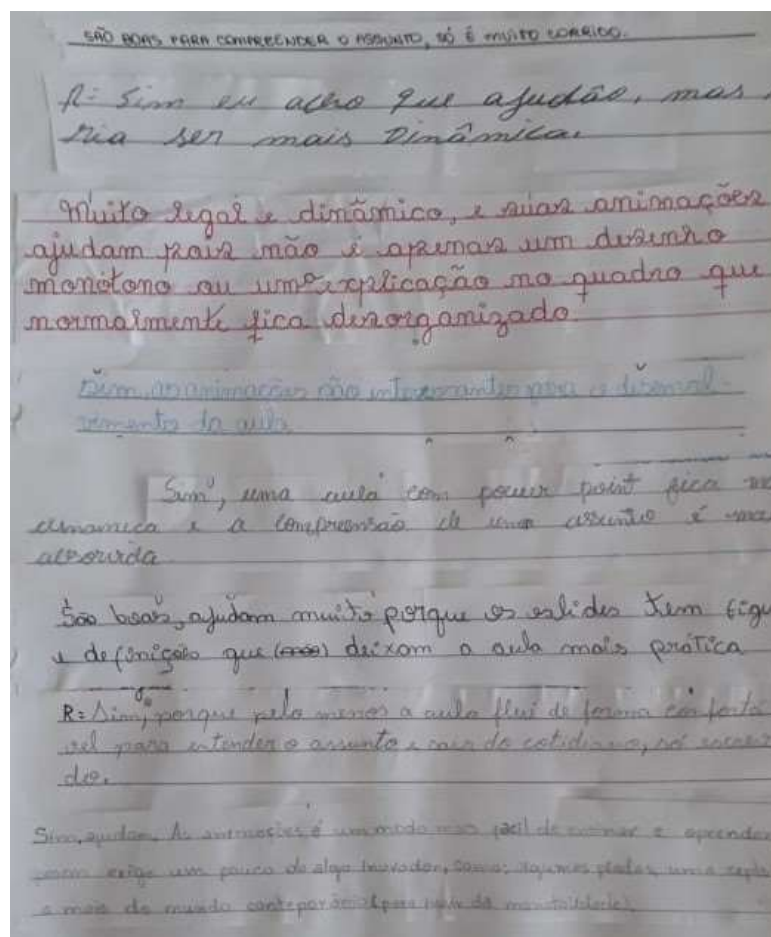 SÃO BOAS PARA COMPREENDER O ASSUNTO, SÓ É MUITO CORRIDO.
R: Sim eu acho que ajudão, mas
ria ser mais Dinâmica.
Muito legal e dinâmico, e suas animações
ajudam pois não é apenas um desenho
monótono ou uma explicação no quadro que
normalmente fica desorganizado.
Sim, as animações são interessantes para o desenvol-
vimento da aula
Sim, uma aula com power point fica
dinamica e a compreensão de um assunto é
absorvida
São boas, ajudam muito porque os eslides tem figu
e definição que (não) deixam a aula mais prática
R: Sim, porque pelo menos a aula flui de forma conforta
vel para entender o assunto e do cotidiano,
Sim, ajudam. As é um modo mais facil de ensinar e aprender
exige um pouco de algo inovador, como: algumas
e mais do mundo